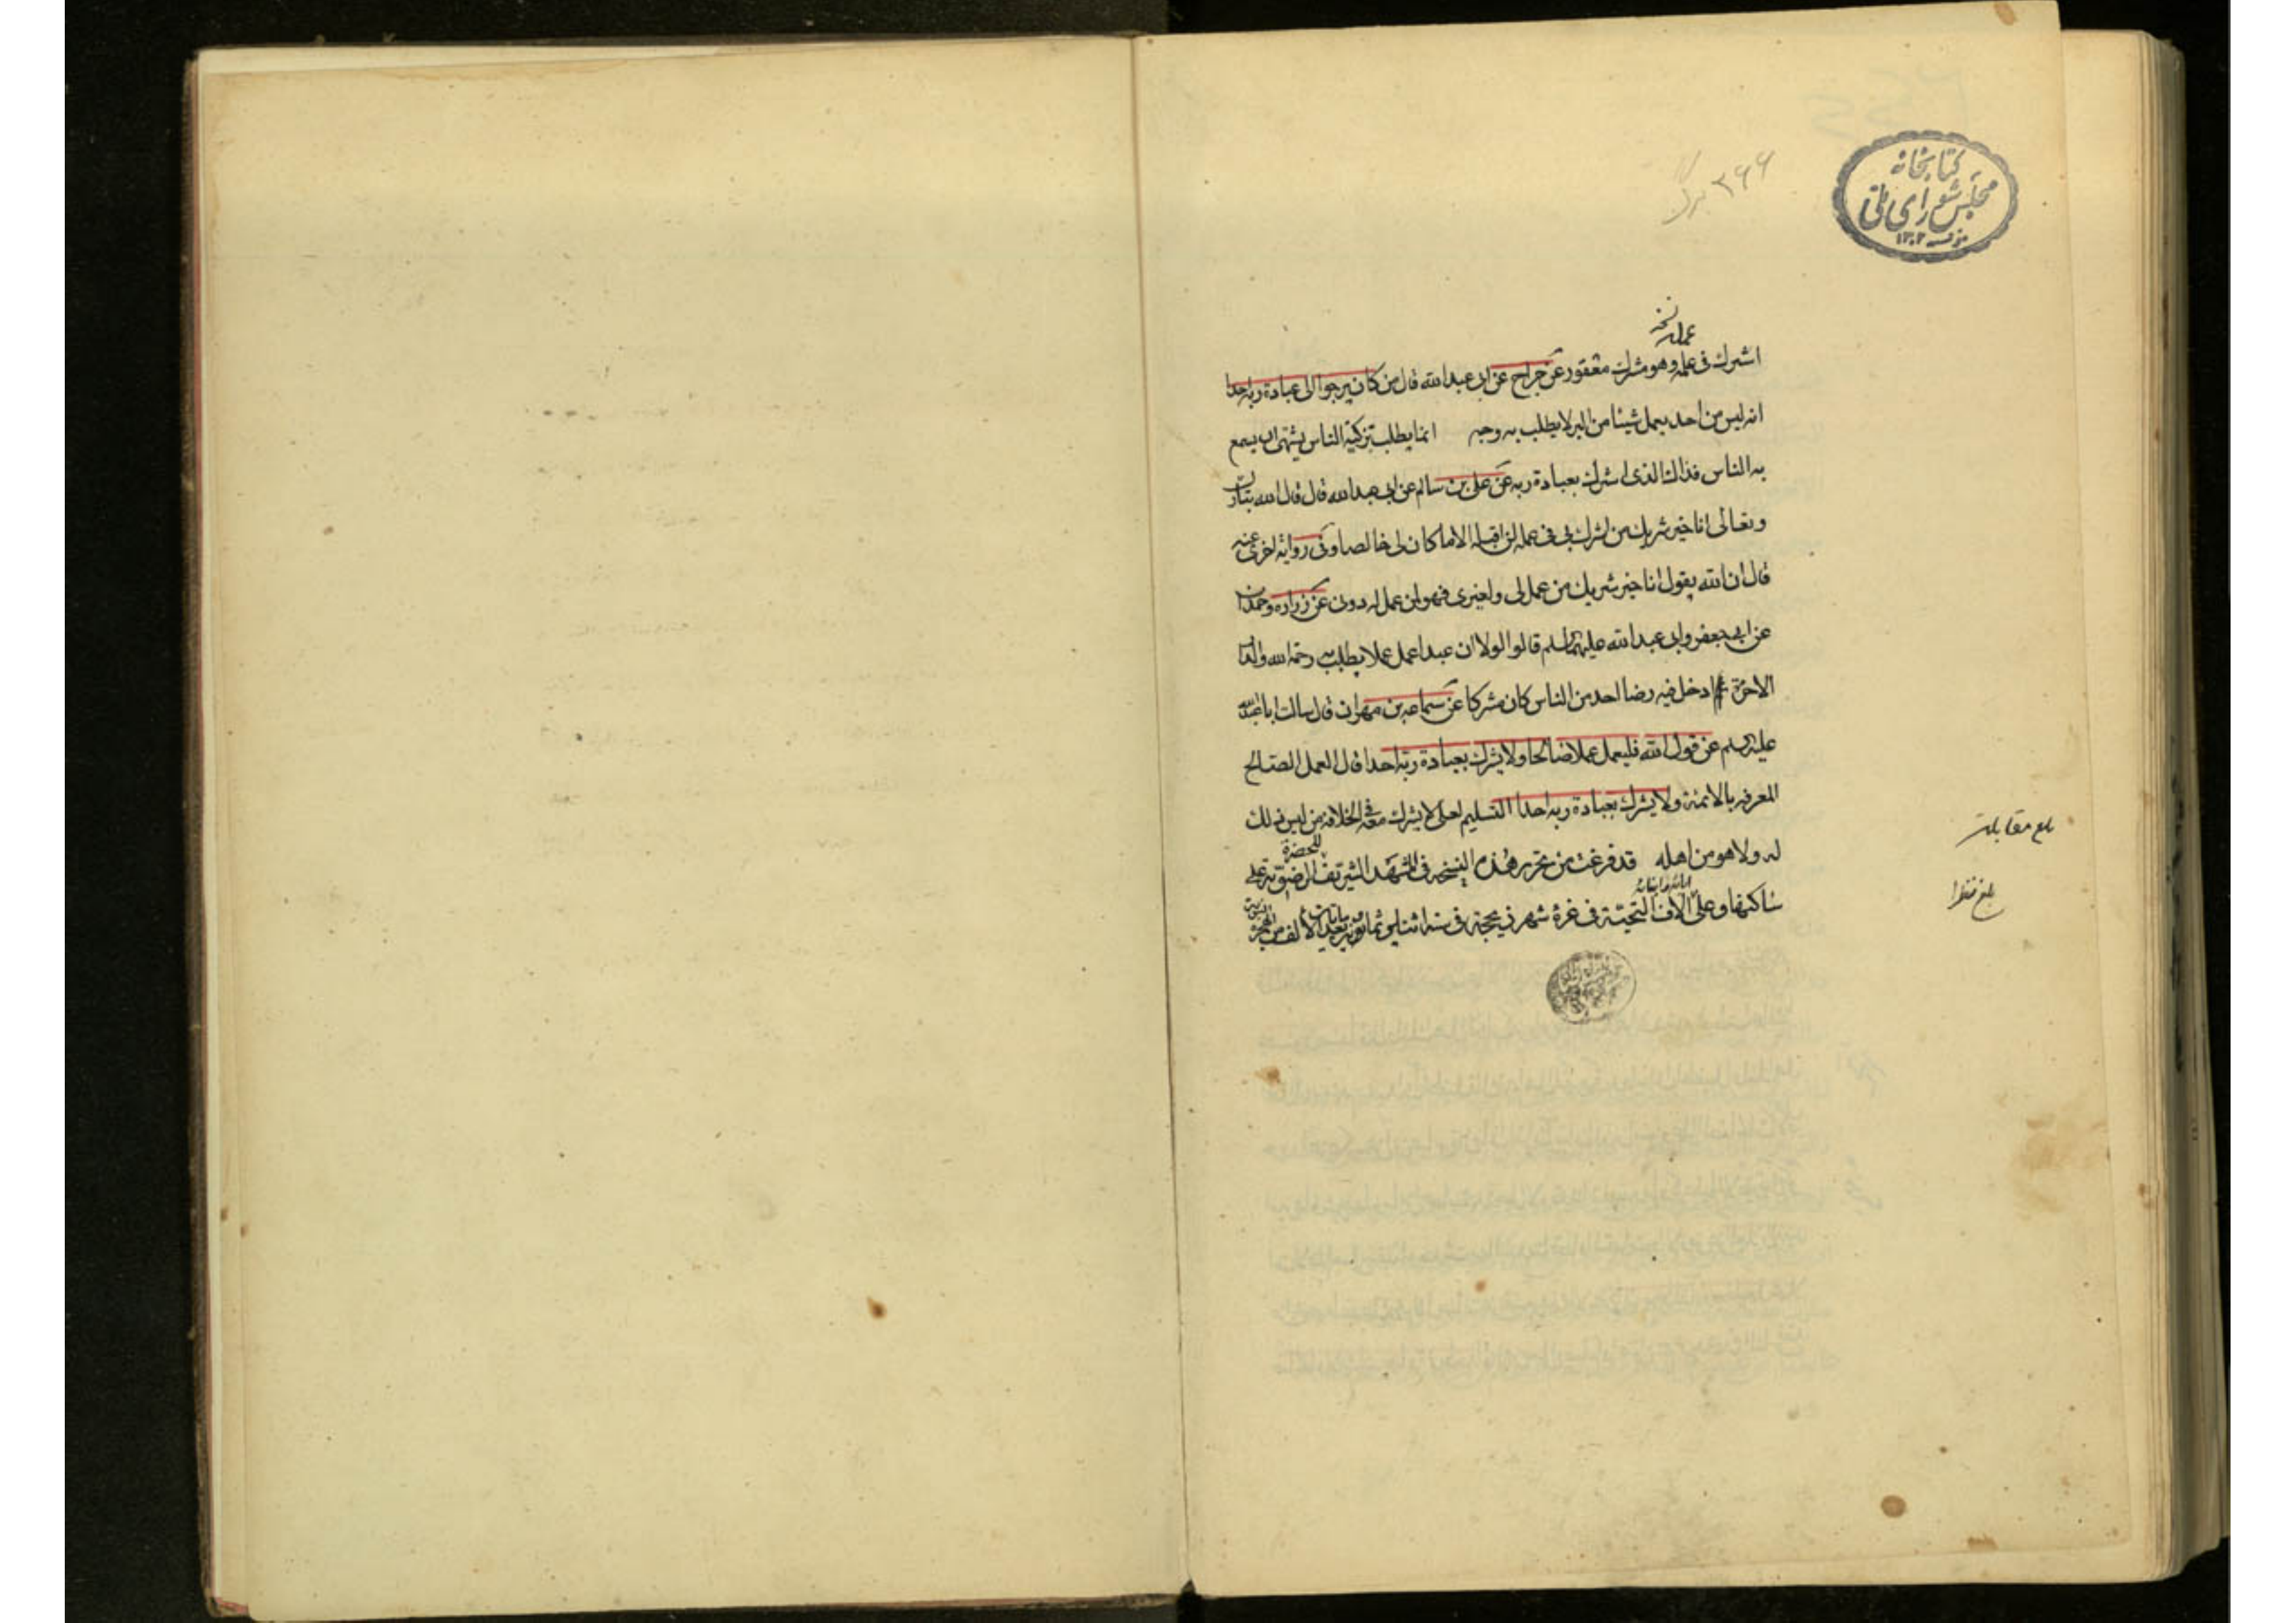 كتابخانه
مجلس شورای ملی
۱۳۰۲
۳۶۶ برگ
نسخه
عمله
اشرك فى عمله وهو مشرك مغفور عن جراح عن ابى عبدالله قال من كان يرجوا الى عبادة ربه احدا
انه ليس من احد يعمل شيئا من البر لا يطلب به وجه انما يطلب تزكية الناس يشتهى ان يسمع
به الناس فذاك الذى اشرك بعبادة ربه عن على بن سالم عن ابى عبدالله قال قال الله تبارك
وتعالى انا خير شريك من اشرك بى فى عمله لن اقبله الا ما كان لى خالصا وفى رواية اخرى عنه
قال ان الله يقول انا خير شريك من عمل لى ولغيرى فهو لمن عمل له دونى عن زراره وحمران
عن ابى جعفر وابى عبدالله عليهما السلم قالوا لولا ان عبدا عمل عملا يطلب به رحمة الله والدار
الاخرة ثم ادخل فيه رضا احد من الناس كان مشركا عن سماعه بن مهران قال سالت ابا عبدالله
عليه السلم عن قول الله فليعمل عملا صالحا ولا يشرك بعبادة ربه احدا قال العمل الصالح
المعرفه بالائمة ولا يشرك بعبادة ربه احدا التسليم لعلى لا يشرك معه فى الخلافة من ليس ذلك
له ولا هو من اهله قد فرغت من تحرير هذه النسخه فى المشهد الشريف الرضويه على
للحضرة
ساكنها وعلى الاف التحية فى غرة شهر ذيحجة فى سنة اثنا وثمانون بعد الالف من الهجرة
ابائه وابنائه
النبوية
بلغ مقابلة
بلغ نظرا